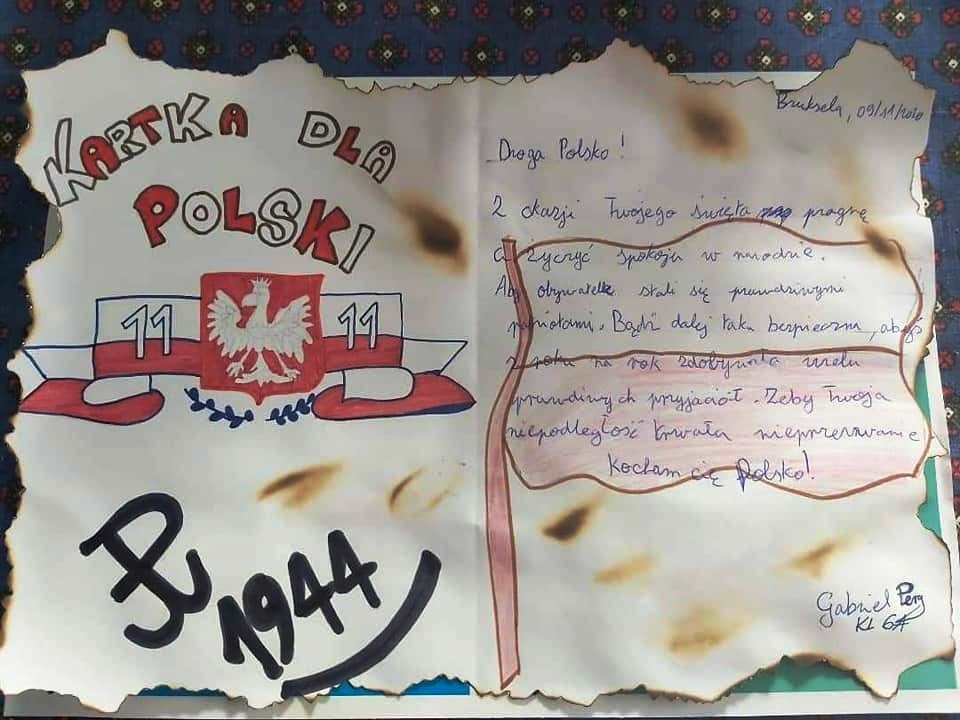 KARTKA DLA
POLSKI
11 11
PW
1944
Bruksela, 09/11/2020
Droga Polsko!
Z okazji Twojego święta pragnę
Ci życzyć spokoju w narodzie.
Aby obywatele stali się prawdziwymi
patriotami. Bądź dalej taka bezpieczna, abyś
z roku na rok zdobywała wielu
prawdziwych przyjaciół. Żeby Twoja
niepodległość trwała nieprzerwanie
Kocham cię Polsko!
Gabriel
KL 6A